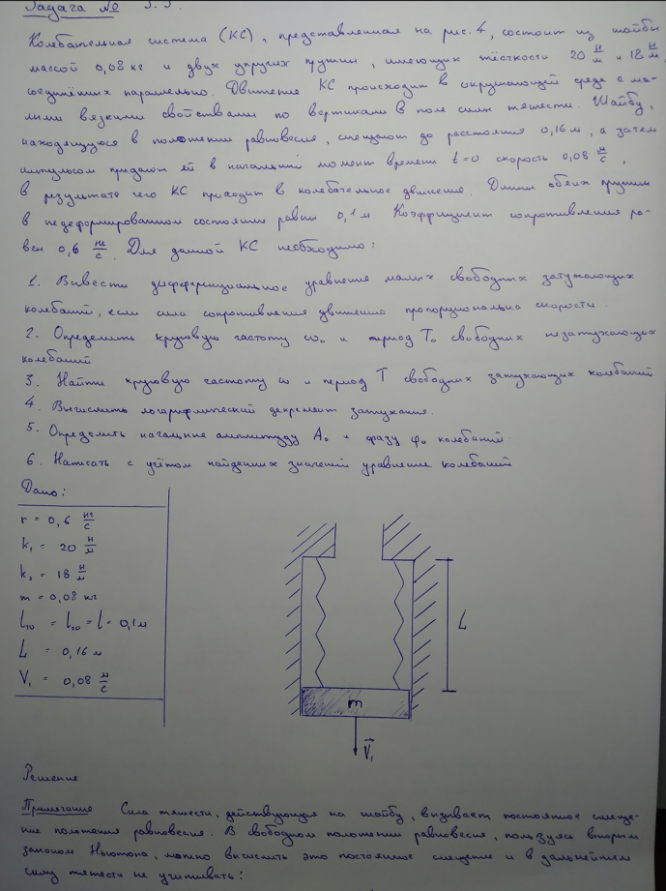 Задача № 3.3.
Колебательная система (КС), представленная на рис. 4, состоит из шайбы
массой 0,08 кг и двух упругих пружин, имеющих жёсткости 20 Н/м и 18 Н/м,
соединённых параллельно. Движение КС происходит в окружающей среде с ма-
лыми вязкими свойствами по вертикали в поле силы тяжести. Шайбу,
находящуюся в положении равновесия, смещают до расстояния 0,16 м, а затем
импульсом придают ей в начальный момент времени t=0 скорость 0,08 м/с,
в результате чего КС приходит в колебательное движение. Длины обеих пружин
в недеформированном состоянии равны 0,1 м. Коэффициент сопротивления ра-
вен 0,6 кг/с. Для данной КС необходимо:
1. Вывести дифференциальное уравнение малых свободных затухающих
колебаний, если сила сопротивления движению пропорциональна скорости.
2. Определить круговую частоту ω₀ и период T₀ свободных незатухающих
колебаний
3. Найти круговую частоту ω и период T свободных затухающих колебаний
4. Вычислить логарифмический декремент затухания.
5. Определить начальные амплитуду A₀ и фазу φ₀ колебаний
6. Написать с учётом найденных значений уравнение колебаний
Дано:
r = 0,6 кг/с
k₁ = 20 Н/м
k₂ = 18 Н/м
m = 0,08 кг
l₁₀ = l₂₀ = l = 0,1 м
L = 0,16 м
V₁ = 0,08 м/с
L
m
V₁
Решение
Примечание Сила тяжести, действующая на шайбу, вызывает постоянное смеще-
ние положения равновесия. В свободном положении равновесия, пользуясь вторым
законом Ньютона, можно вычислить это постоянное смещение и в дальнейшем
силу тяжести не учитывать: